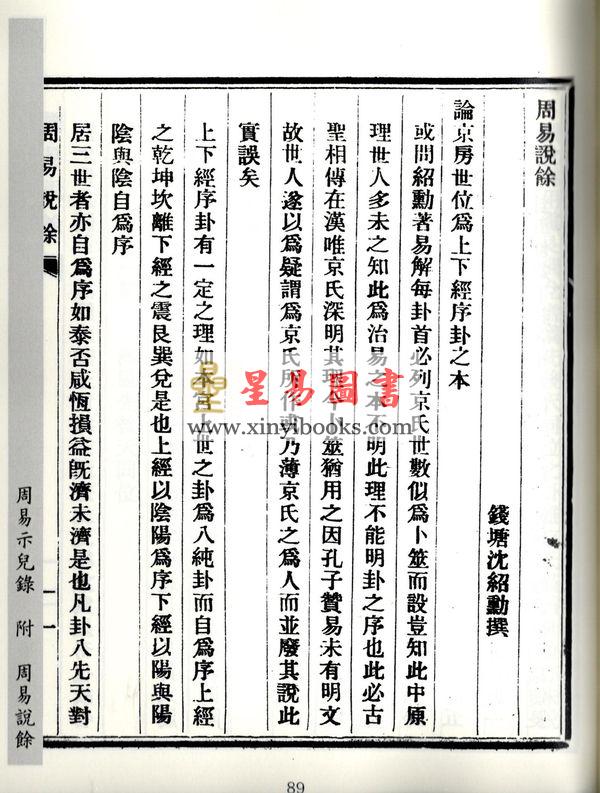 周易說餘
錢塘沈紹勳撰
論京房世位爲上下經序卦之本
或問紹勳著易解每卦首必列京氏世數似爲卜筮而設豈知此中原
理世人多未之知此爲治易之本不明此理不能明卦之序也此必古
聖相傳在漢唯京氏深明其理卜筮猶用之因孔子贊易未有明文
故世人遂以爲疑謂爲京氏所作或乃薄京氏之爲人而並廢其說此
實誤矣
上下經序卦有一定之理如本宮上世之卦爲八純卦而自爲序上經
之乾坤坎離下經之震艮巽兌是也上經以陰陽爲序下經以陽與陽
陰與陰自爲序
居三世者亦自爲序如泰否咸恆損益旣濟未濟是也凡卦八先天對
周易說餘 一
周易示兒錄 附 周易說餘
89
星易圖書
www.xinyibooks.com